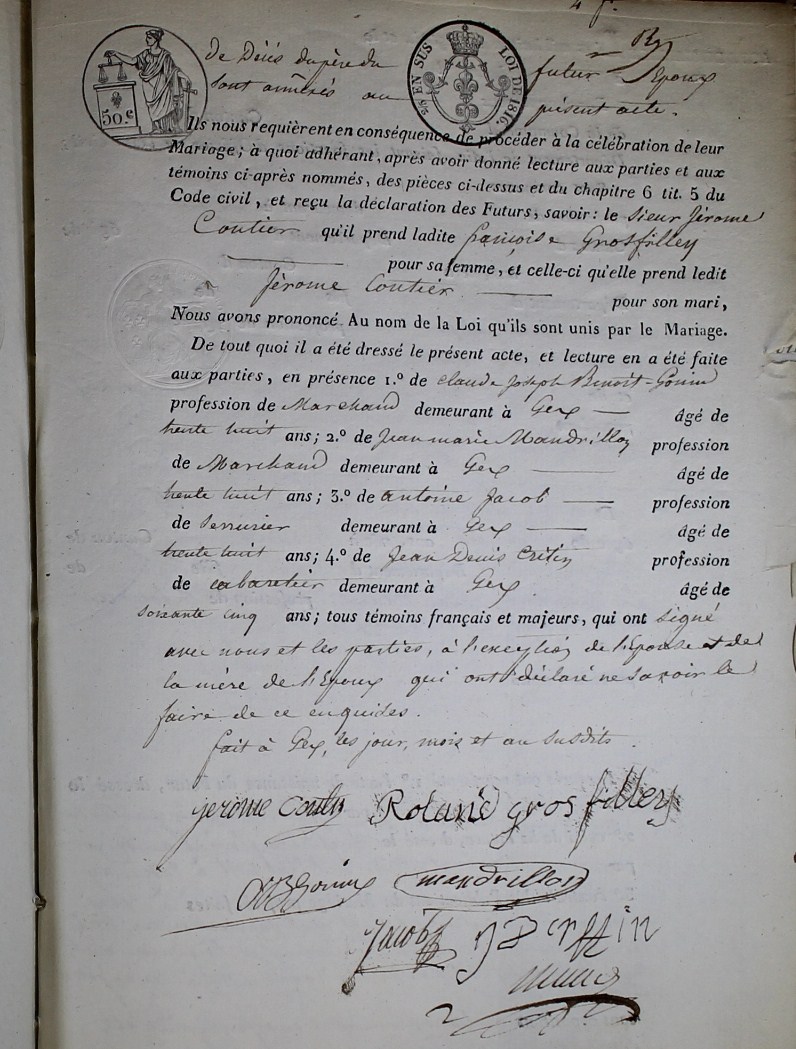 50.c
EN SUS LOI DE 1816.
de Décès du père du futur Epoux
sont annexés au présent acte.
Ils nous requièrent en conséquence de procéder à la célébration de leur
Mariage ; à quoi adhérant, après avoir donné lecture aux parties et aux
témoins ci-après nommés, des pièces ci-dessus et du chapitre 6 tit. 5 du
Code civil, et reçu la déclaration des Futurs, savoir : le sieur Jérome
Coutier qu'il prend ladite françoise Grosfilley
pour sa femme, et celle-ci qu'elle prend ledit
Jérome Coutier pour son mari,
Nous avons prononcé Au nom de la Loi qu'ils sont unis par le Mariage.
De tout quoi il a été dressé le présent acte, et lecture en a été faite
aux parties, en présence 1.º de Claude Joseph Benoit-Gonin
profession de Marchand demeurant à Gex âgé de
trente huit ans ; 2.º de Jean marie Mandrillon profession
de Marchand demeurant à Gex âgé de
trente huit ans ; 3.º de antoine Jacob profession
de serrurier demeurant à Gex âgé de
trente huit ans ; 4.º de Jean Denis profession
de cabaretier demeurant à Gex âgé de
soixante cinq ans ; tous témoins français et majeurs, qui ont signé
avec nous et les parties, à l'exception de l'Epouse et de
la mère de l'Epoux qui ont déclaré ne savoir le
faire de ce enquises.
fait à Gex, les jour, mois et an susdits.
jerome Coutier Roland grosfilley
Gonin mandrillon
Jacob